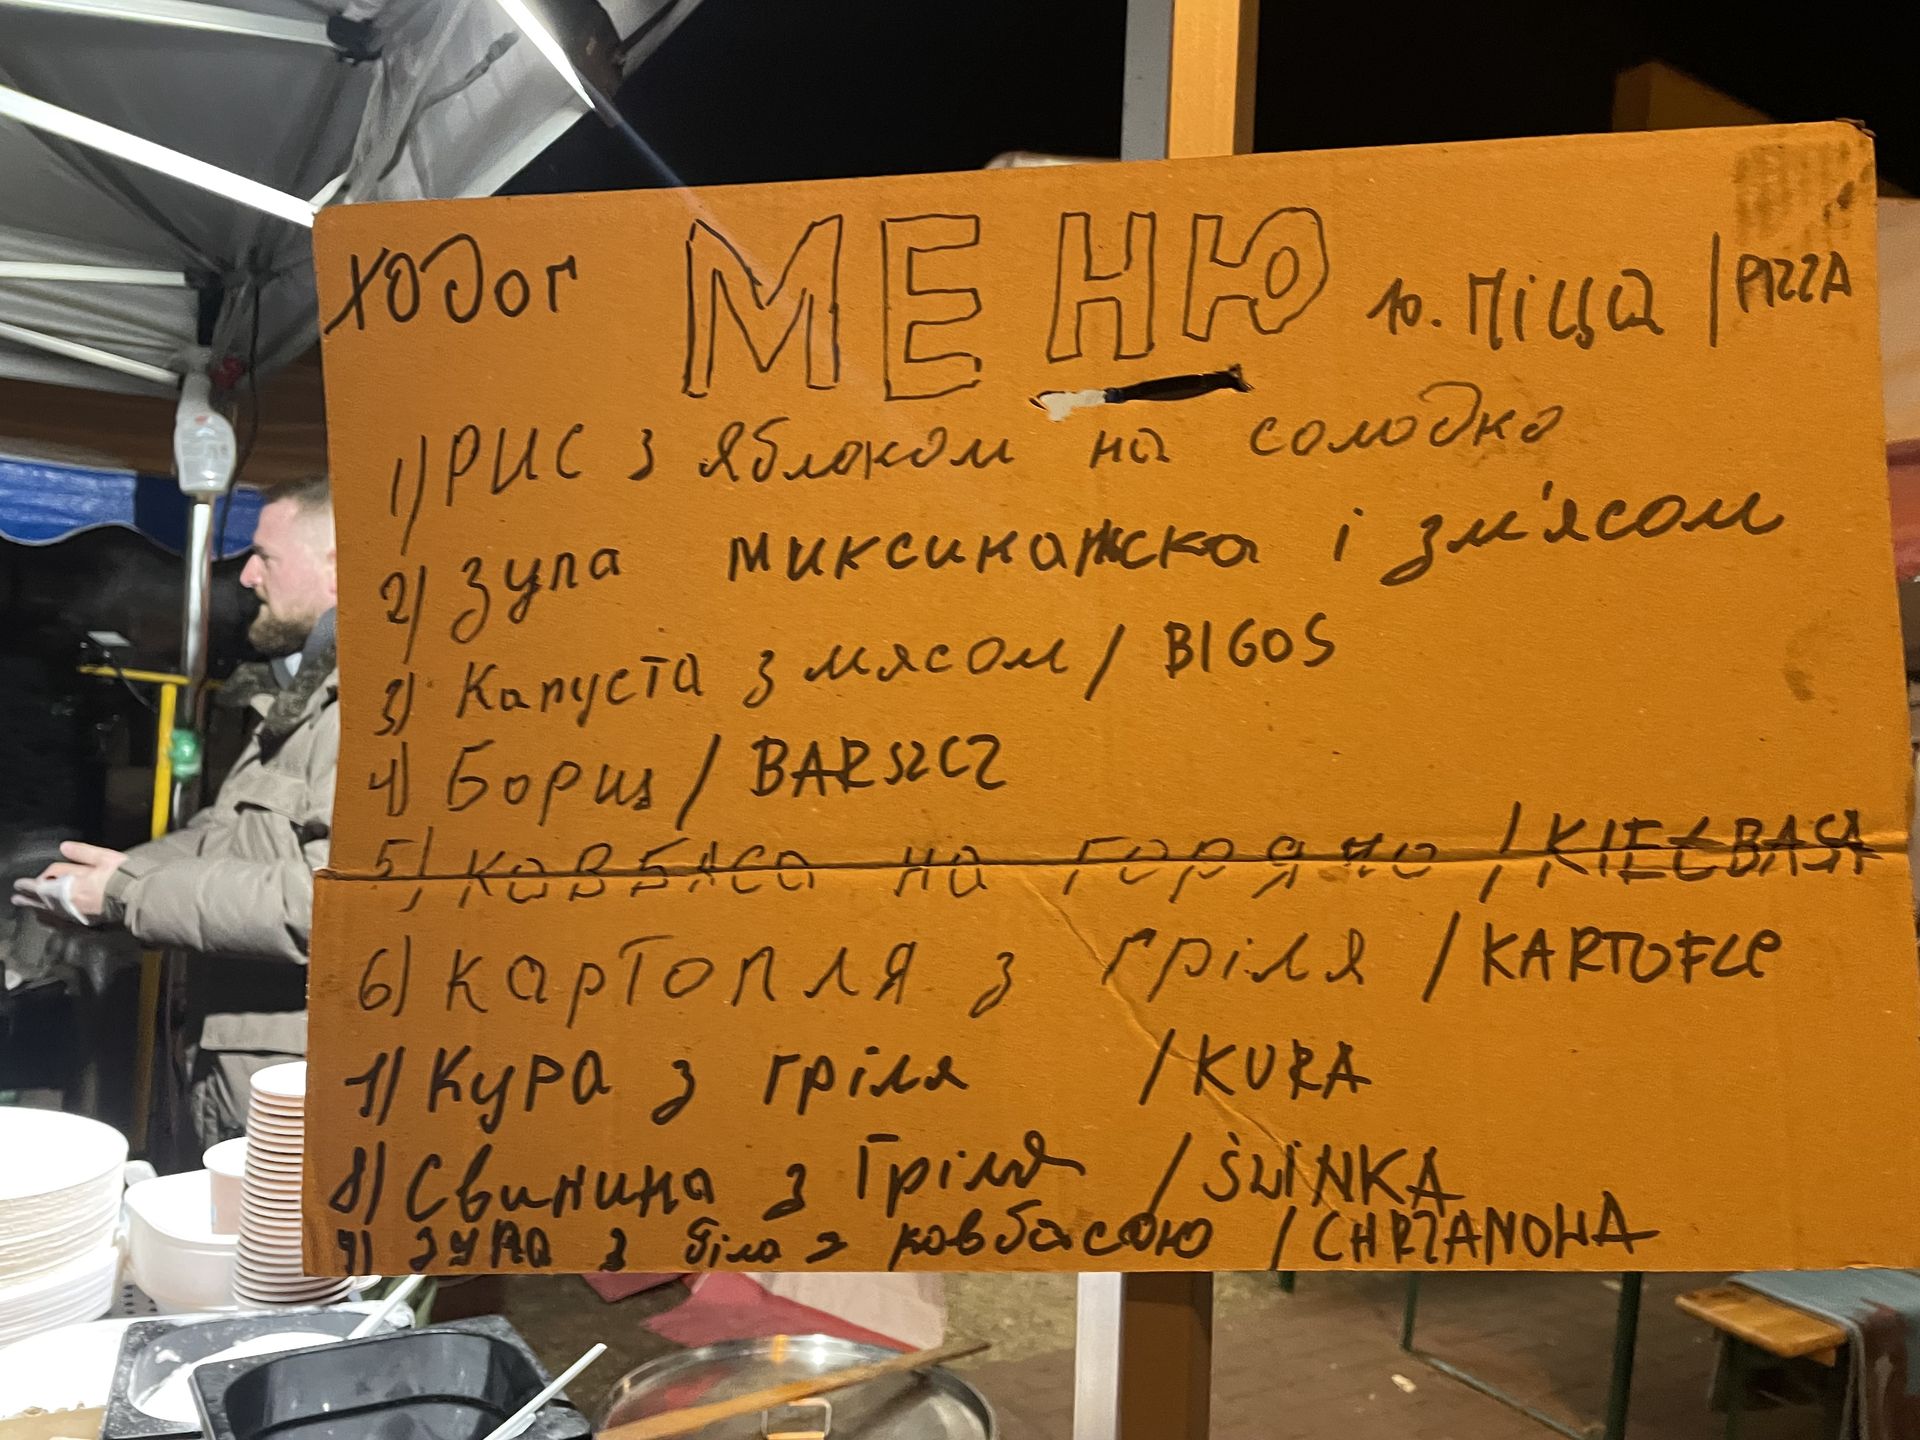 ХОДОГ МЕНЮ 10. ПІЦА | PIZZA
1) РИС З ЯБЛОКОМ НА СОЛОДКО
2) ЗУПА МИКСИКАНСКА І ЗМ'ЯСОМ
3) КАПУСТА З МЯСОМ / BIGOS
4) БОРЩ / BARSZCZ
5) КОВБАСА НА ГОРЯЧО / KIEŁBASA
6) КАРТОПЛЯ З ГРІЛЯ / KARTOFLE
7) КУРА З ГРІЛЯ / KURA
8) СВИНИНА З ГРІЛЯ / ŚWINKA
9) ЗУПА З БІЛА З КОВБАСОЮ / CHRZANOWA